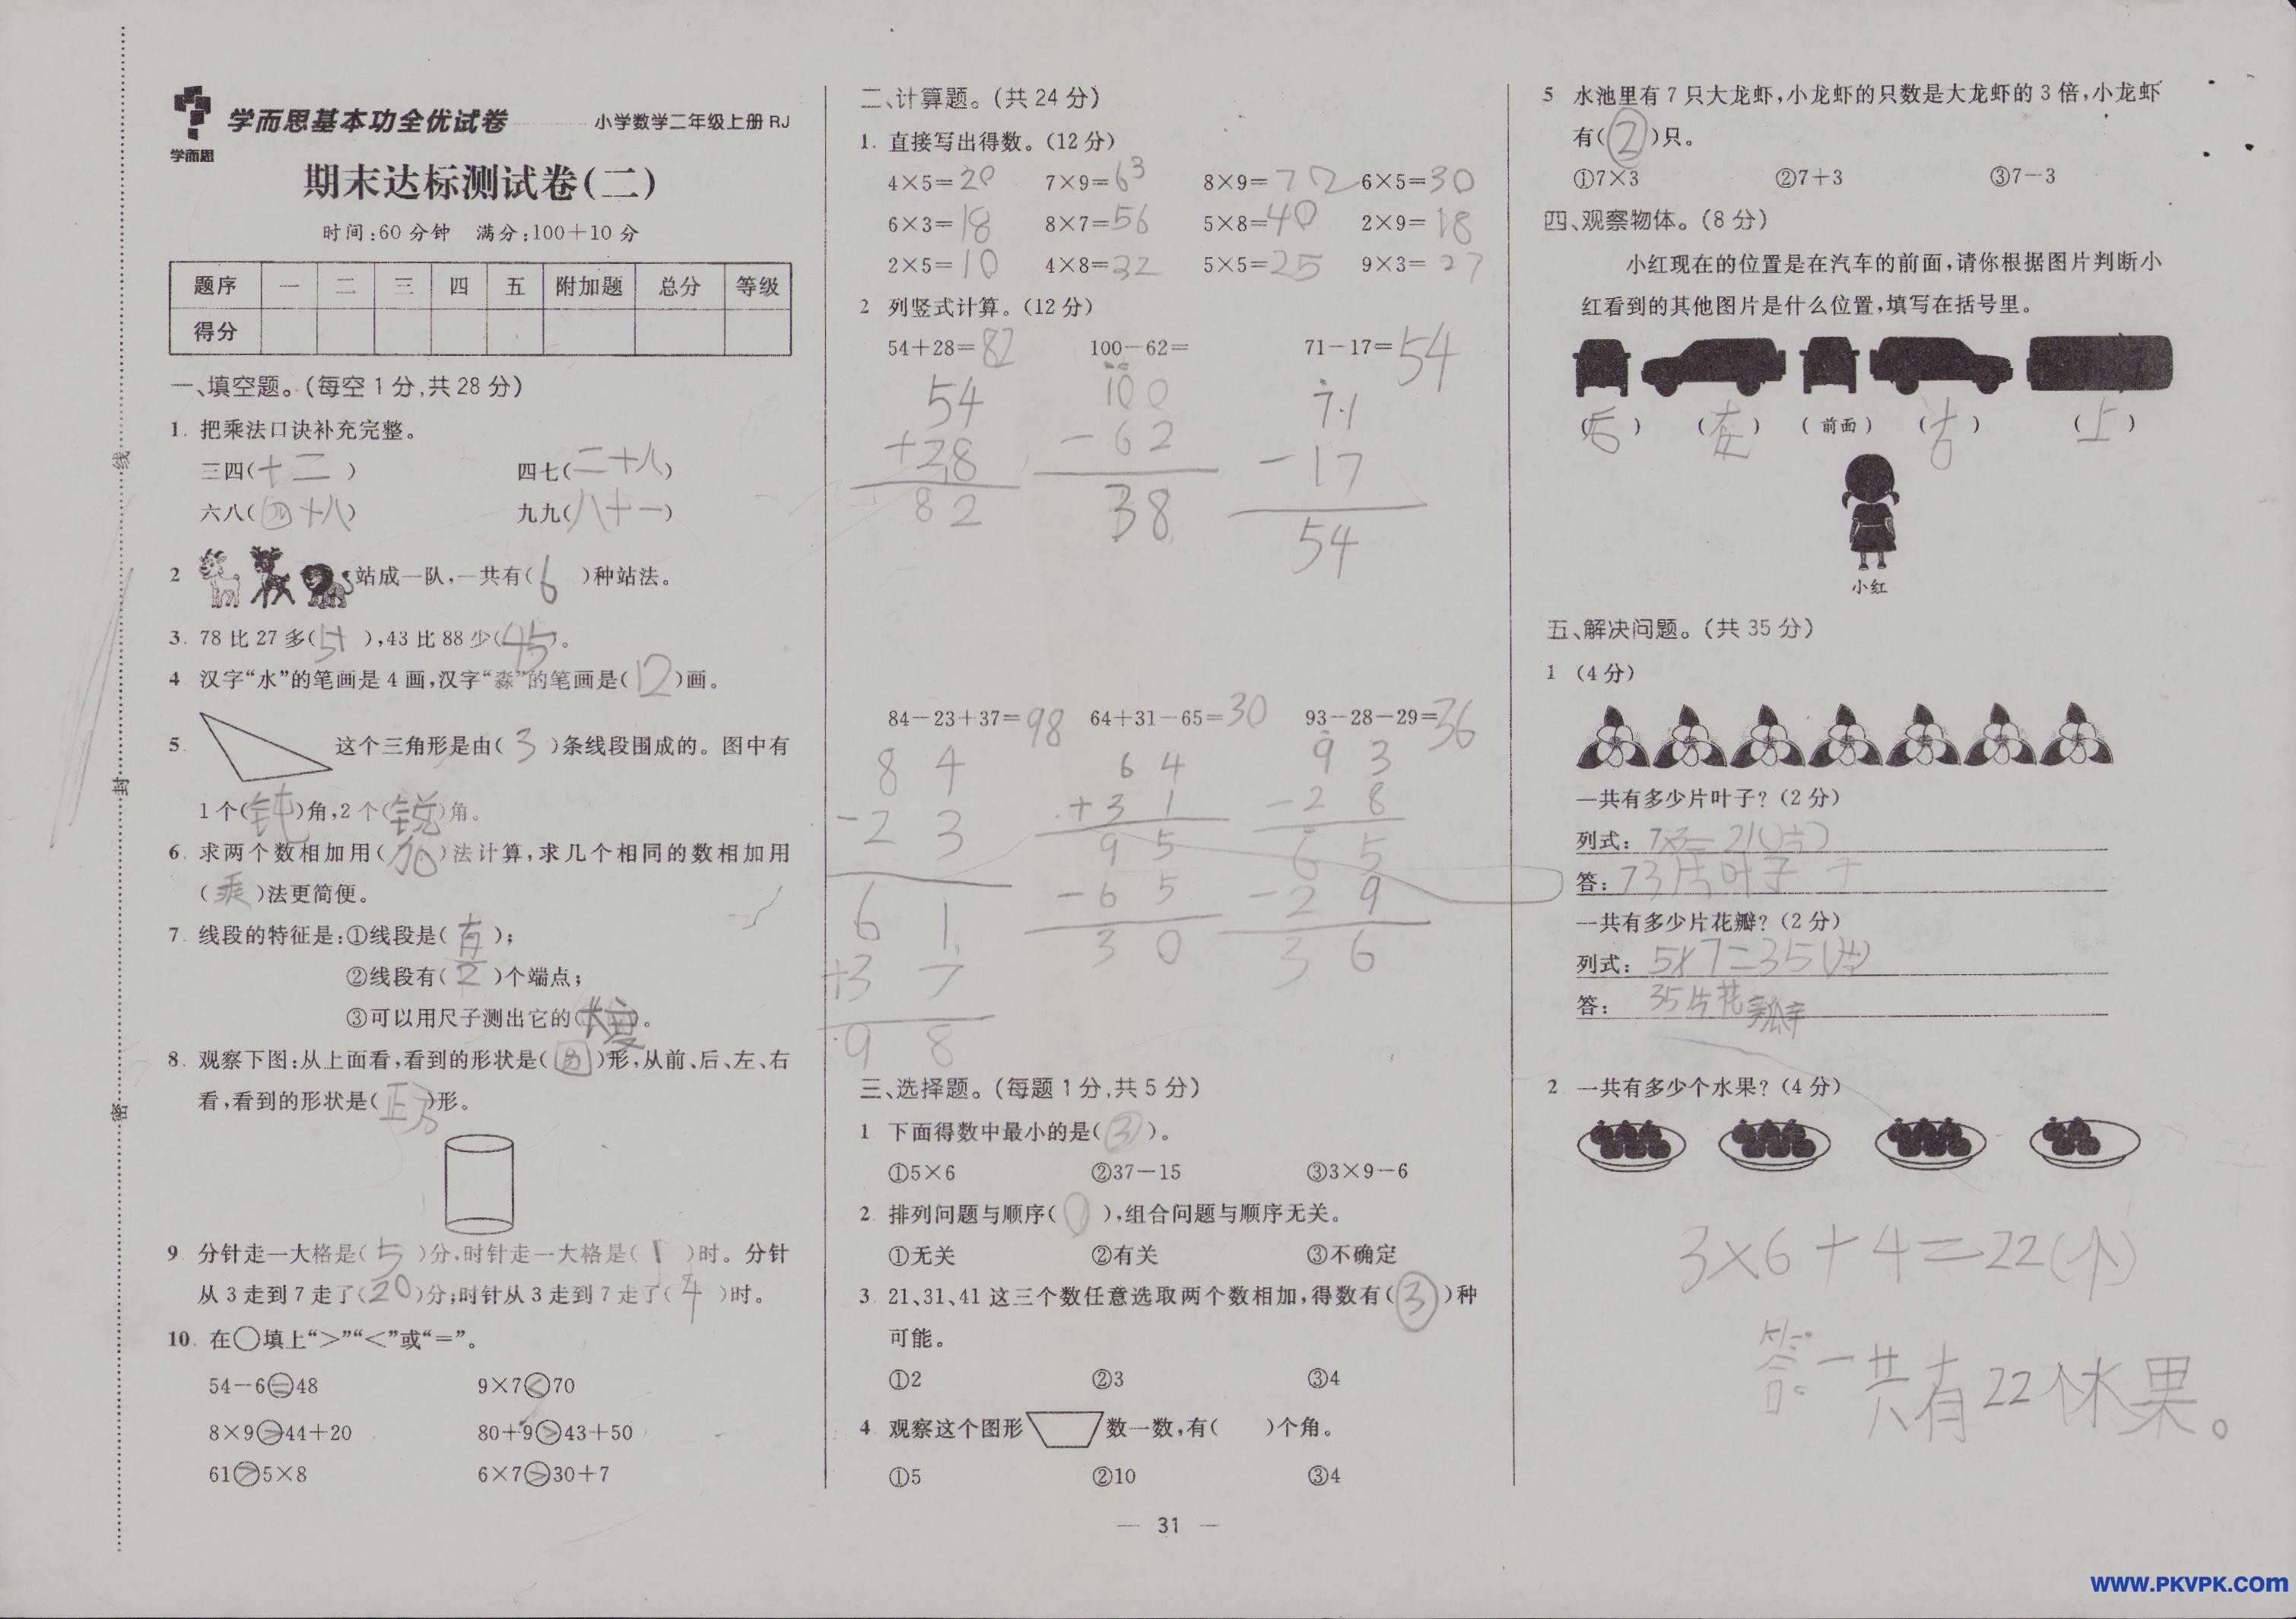 学而思基本功全优试卷 小学数学二年级上册 RJ
学而思
期末达标测试卷(二)
时间:60 分钟 满分:100+10 分
题序 一 二 三 四 五 附加题 总分 等级
得分
一、填空题。(每空 1 分,共 28 分)
1. 把乘法口诀补充完整。
三四(十二) 四七(二十八)
六八(四十八) 九九(八十一)
2 站成一队,一共有(6)种站法。
3. 78 比 27 多(51),43 比 88 少(45)。
4 汉字“水”的笔画是 4 画,汉字“淼”的笔画是(12)画。
5. 这个三角形是由(3)条线段围成的。图中有
1 个(钝)角,2 个(锐)角。
6. 求两个数相加用(加)法计算,求几个相同的数相加用
(乘)法更简便。
7. 线段的特征是:①线段是(直);
②线段有(2)个端点;
③可以用尺子测出它的( )。
8. 观察下图:从上面看,看到的形状是(圆)形,从前、后、左、右
看,看到的形状是(正方)形。
9. 分针走一大格是(5)分,时针走一大格是(1)时。分针
从 3 走到 7 走了(20)分;时针从 3 走到 7 走了(4)时。
10. 在○填上“>”“<”或“=”。
54-6=48 9×7<70
8×9>44+20 80+9>43+50
61>5×8 6×7>30+7
线
封
密
二、计算题。(共 24 分)
1. 直接写出得数。(12 分)
4×5=20 7×9=63 8×9=72 6×5=30
6×3=18 8×7=56 5×8=40 2×9=18
2×5=10 4×8=32 5×5=25 9×3=27
2 列竖式计算。(12 分)
54+28=82 100-62= 71-17=54
54 100 71
+28 -62 -17
82 38 54
84-23+37=98 64+31-65=30 93-28-29=36
84 64 93
-23 +31 -28
61 95 65
+37 -65 -29
98 30 36
三、选择题。(每题 1 分,共 5 分)
1 下面得数中最小的是(③)。
①5×6 ②37-15 ③3×9-6
2. 排列问题与顺序(①),组合问题与顺序无关。
①无关 ②有关 ③不确定
3. 21、31、41 这三个数任意选取两个数相加,得数有(③)种
可能。
①2 ②3 ③4
4 观察这个图形 数一数,有( )个角。
①5 ②10 ③4
— 31 —
5 水池里有 7 只大龙虾,小龙虾的只数是大龙虾的 3 倍,小龙虾
有(②)只。
①7×3 ②7+3 ③7-3
四、观察物体。(8 分)
小红现在的位置是在汽车的前面,请你根据图片判断小
红看到的其他图片是什么位置,填写在括号里。
(后) (左) (前面) (右) (上)
小红
五、解决问题。(共 35 分)
1 (4 分)
一共有多少片叶子?(2 分)
列式: 7×3=21
答: 片叶子
一共有多少片花瓣?(2 分)
列式: 5×7=35
答: 35片花
2 一共有多少个水果?(4 分)
3×6+4=22(个)
答一共有22个水果。
www.PKVPK.com